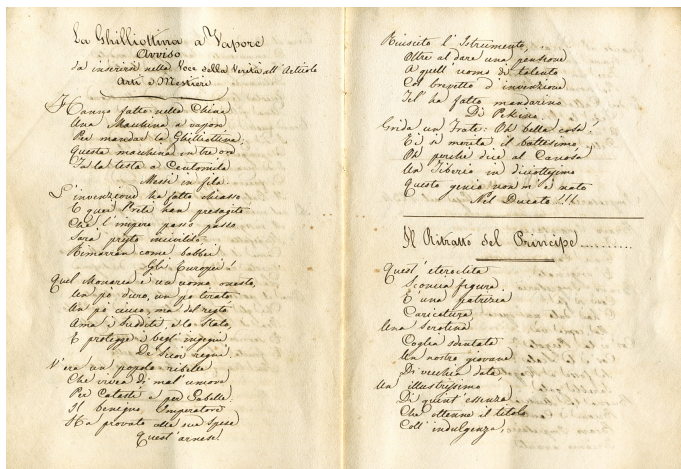 La Ghilliottina a Vapore
Avviso
da inserirsi nella Voce della Verità all' Articolo
Arti e Mestieri
Hanno fatto nella China
Una Macchina a vapore
Per mandar la Ghilliottina;
Questa macchina in tre ore
Fa la testa a Centomila
Messi in fila.
L'invenzione ha fatto chiasso
E quei Preti han presagito
Che l'impero passo passo
Sarà presto incivilito
Rimarran come babbei
Gli Europei!
Quel Monarca è un uomo onesto,
Un pò duro, un pò tirato
Un pò ciuco, ma del resto
Ama i Sudditi, e lo Stato,
E protegge i begl' ingegni
De' suoi regni.
V'era un popolo ribelle
Che vivea di mal umore
Per Cataste e per Gabelle.
Il benigno Imperatore
Ha provato alle sue spese
Quest' arnese.
Riuscito l' Istrumento,
Oltre al dare una pensione
A quell' uomo di talento
Col brevetto d' invenzione
Iel' ha fatto mandarino
Di Pekino
Grida un Frate: Oh bella cosa!
Ei si merita il battesimo,
Oh perchè dice al Canosa
Un Tiberio in diciottesimo
Questo genio non m' è nato
Nel Ducato!!!
Il Ritratto del Principe..........
Quest' eteroclita
Sconcia figura
È una patrizia
Caricatura
Una serotina
Coglia sdentata
Un nostro giovane
Di vecchia data
Un illustrissimo
Di quint' essenza
Che ottenne il titolo
Coll' indulgenza,